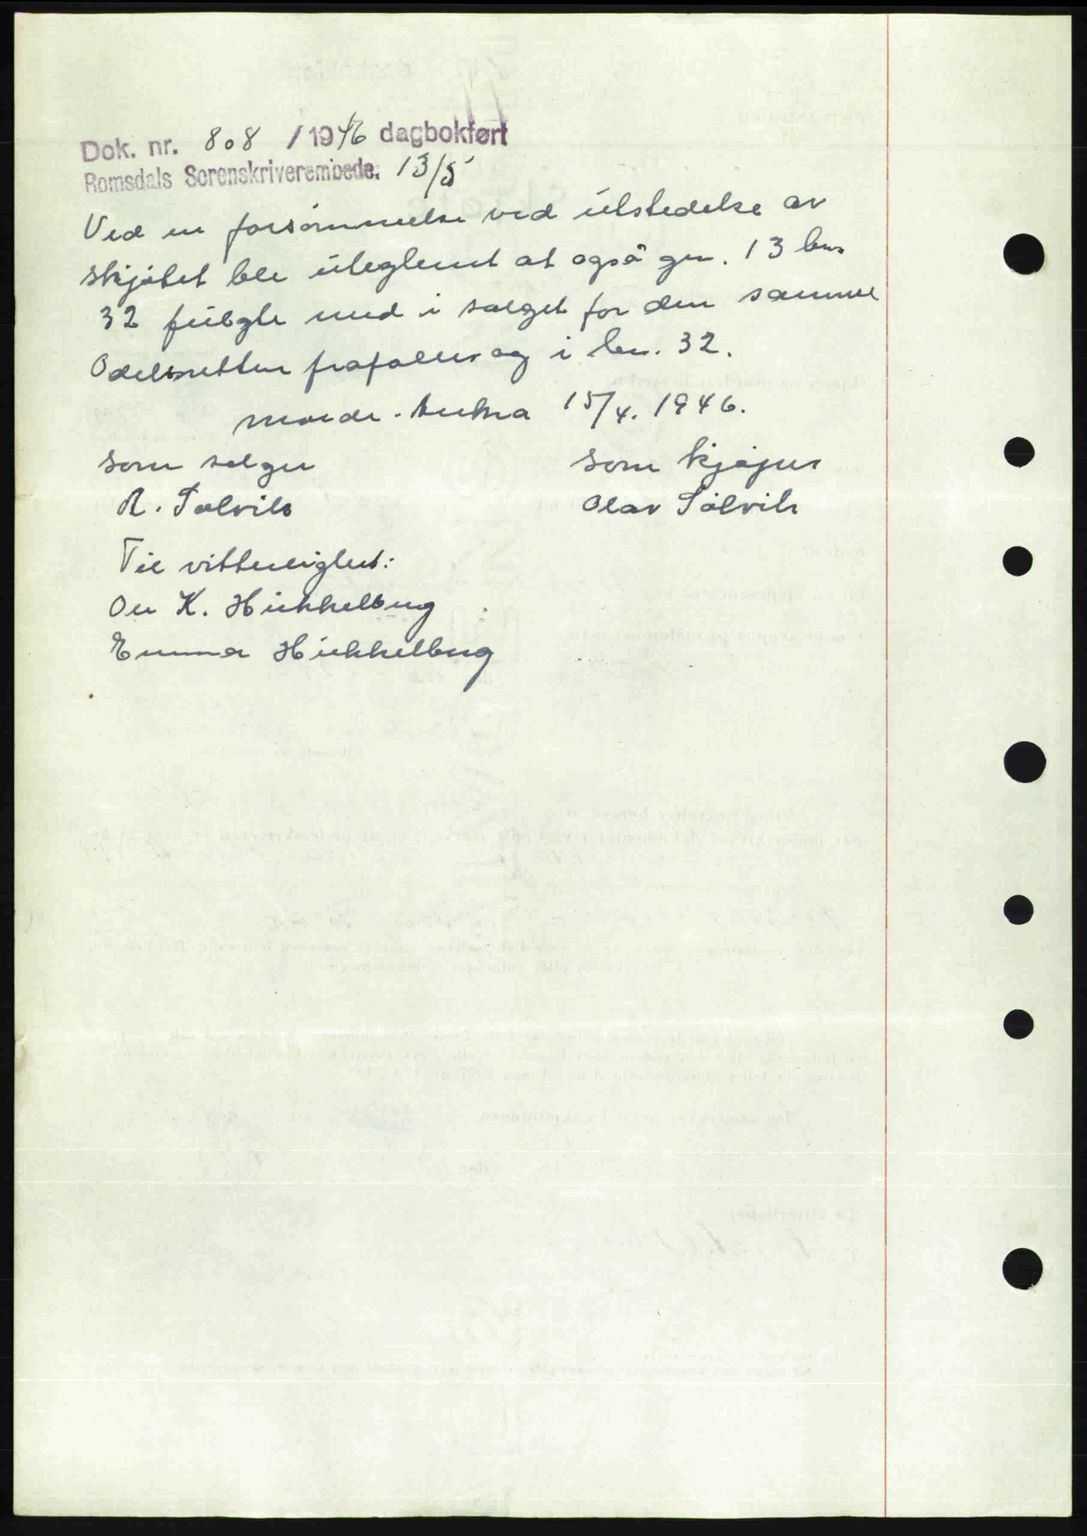 Dok. nr. 808 / 1946 dagbokført
Romsdals Sorenskriverembede. 13/5
Ved en forsömmelse ved utstedelse av
skjötet ble uteglemt at også gnr. 13 bnr
32 fulgte med i salget for den samme
Odelsretten frafalles og i bnr. 32.
15/4. 1946.
Som selger
Som kjøper
R. Solvik
Olav Solvik
Til vitterlighet:
Ole K. Hukkelberg
Emma Hukkelberg